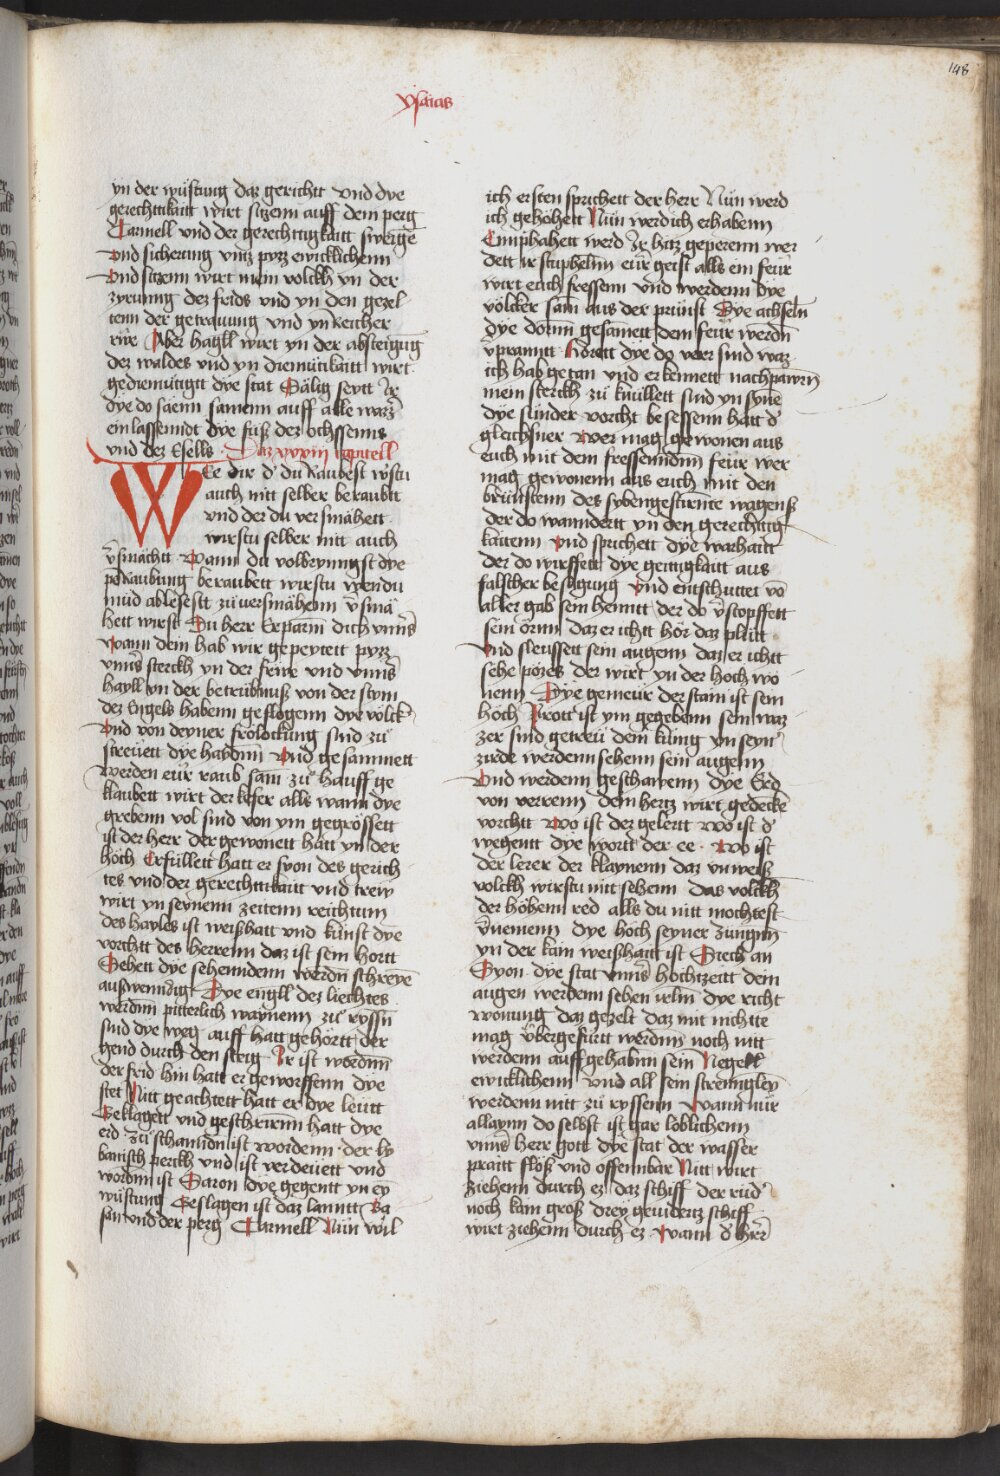 148
ysaias
yn der wüstung daz gerichtt vnd dye
gerechttikaitt wirt sitzenn auff dem perg
Carmell vnd der gerechttigkaitt sweigē
vnd sicherung vntz pyzz ewicklichenn
vnd sitzenn wirt mein volckh yn der
zyrunng dez frids vnd yn den gezel
tenn der getrauung vnd yn Reicher
rüe Aber hagll wirt yn der absteigung
dez waldes vnd yn diemütikaitt wirt
gediemütigtt dye stat Sälig seytt Ir
dye do säenn samenn auff alle wazz̄
einlassenndt dye füß dez ochssenns
vnd dez Esells Daz xxxiii Capitell
WEe dir d' du Raubest wistu
auch nitt selber beraubtt
vnd der du versmähett
wirstu selber nitt auch
v̄smächtt Wann du volbrynngst dye
peRaubung beraubett wirstu wen du
müd ablesestt zu versmähenn v̄smä
hett wirst Du herr Erparm dich vnns̄
wann dein hab wir gepeyteit pyzz
vnns̄ sterckh yn der früe vnd vnns̄
hayll yn der betrübnuß von der stym
dez Engels habenn geflogenn dye völck'
Vnd von deyner frölockung sind zu
streüett dye haydnn Vnd gesammett
werden eür raub sam zu hauff ge
klaubett wirt der kefer alls wann dye
grebenn vol sind von ym gegrössett
ist der herr der gewonett hatt yn der
höch Erfüllett hatt er syon des gerich
tes vnd der gerechttikaitt vnd trew
wirt yn seynenn zeitenn reichtum
des hayles ist weißhait vnd kunst dye
vorchtt des herrenn daz ist sein hortt
Sehett dye sehenndenn werdn̄ schreyē
außwenndigt Dye engll dez liechtes
werdnn pitterlich waynenn zu ryssn̄
sind dye weg auff hatt gehörtt der
gend durch den steig Ir ist wordnn
der frid hin hatt er geworffenn dye
stet Nitt geachtett hatt er dye leütt
Beklagett vnd geschrirnn hatt dye
erd zu schanndn ist wordenn der ly
banisch perckh vnd ist verdeüett vnd
wordnn ist Saron dye gegentt yn ey̅
wüstung Geslagen ist daz lanntt Ba
san vnd der perg Carmell Nün wil
ich ersten sprichett der herr Nün werd
ich gehöhett Nün werd ich erhabenn
Emphahett werd Ir hitz geperenn wer
dett ir stuphelnn eür geist alls ein feür
wirt euch fressenn vnd werdenn dye
völcker sam aus der prunst Dye achseln
dye dornn gesamett dem feür werdn̄
v̄pranntt Hörett dye do verr sind waz
ich hab getan vnd erkennett nachpawrn̄
mein sterckh zu knüllett sind yn synē
dye sünder vorcht besessenn hatt d'
gleichsner wer mag gewonen aus
euch mit dem fressenndnn feür wer
mag gewonenn aus euch mit den
brünstenn des sybengestirnte wagenß
der do wanndertt yn den gerechttig
kaitenn vnd sprichett dye warhaitt
der do wirffett dye geittigkaitt aus
falscher besagung vnd entschuttet vō
aller gab sein henntt der do v̄stopffett
sein örnn daz er ichtt hör daz plütt
vnd sleussett sein augenn daz er ichtt
sehe pözes der wirt yn der höch wo
nenn Dye gemeür der stain ist sein
höch Prott ist ym gegebenn sein waz
zer sind getreü dem künig yn seyn'
zirde werdenn sehenn sein augenn
Vnd werdenn geschawenn dye Erd
von verrenn dein hertz wirt gedeckē
vorchtt wo ist dez gelertt wo ist d'
wegentt dye wortt der ee wo ist
der lerer der klaynenn daz vnweiß
volckh wirstu nit sehenn das volckh
der höhenn red alls du nitt mochtest
v̄nemenn dye höch seyner zungnn
yn der kain weißhaitt ist Siech an
Syon dye stat vnns̄ hochtzeitt dein
augen werdenn sehen irlm dye richt
wonung daz gezelt daz nit nichtte
mag v̈bergefürtt werdnn noch nitt
werdenn auffgehabnn sein Negell
ewicklichenn vnd all sein strenngley̅
werdenn nitt zu ryssenn Wann nür
allaynn do selbst ist gar löblichenn
vnns̄ herr gott dye stat der wasser
praitt flöß vnd offennbar Nitt wirt
ziehenn durch ez daz schiff der rüd'
noch kain groß drey geruderz schiff
wirt ziehenn durch ez Wann d' herr̄